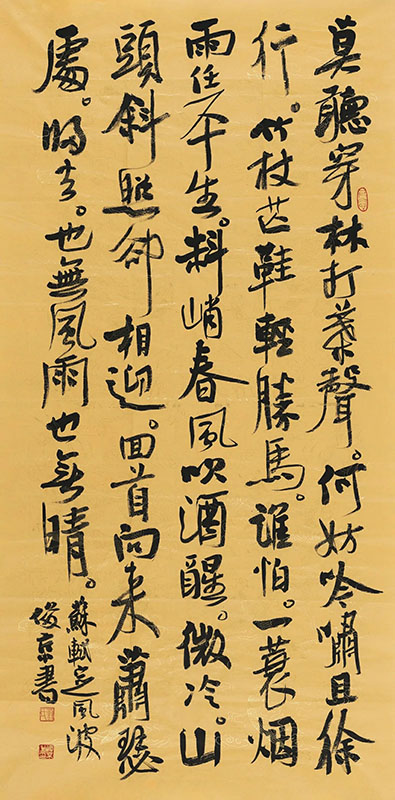 莫聽穿林打葉聲。何妨吟嘯且徐
行。竹杖芒鞋輕勝馬。誰怕。一蓑烟
雨任平生。料峭春風吹酒醒。微冷。山
頭斜照卻相迎。回首向来蕭瑟
處。歸去。也無風雨也無晴。
蘇軾定風波
俊京書